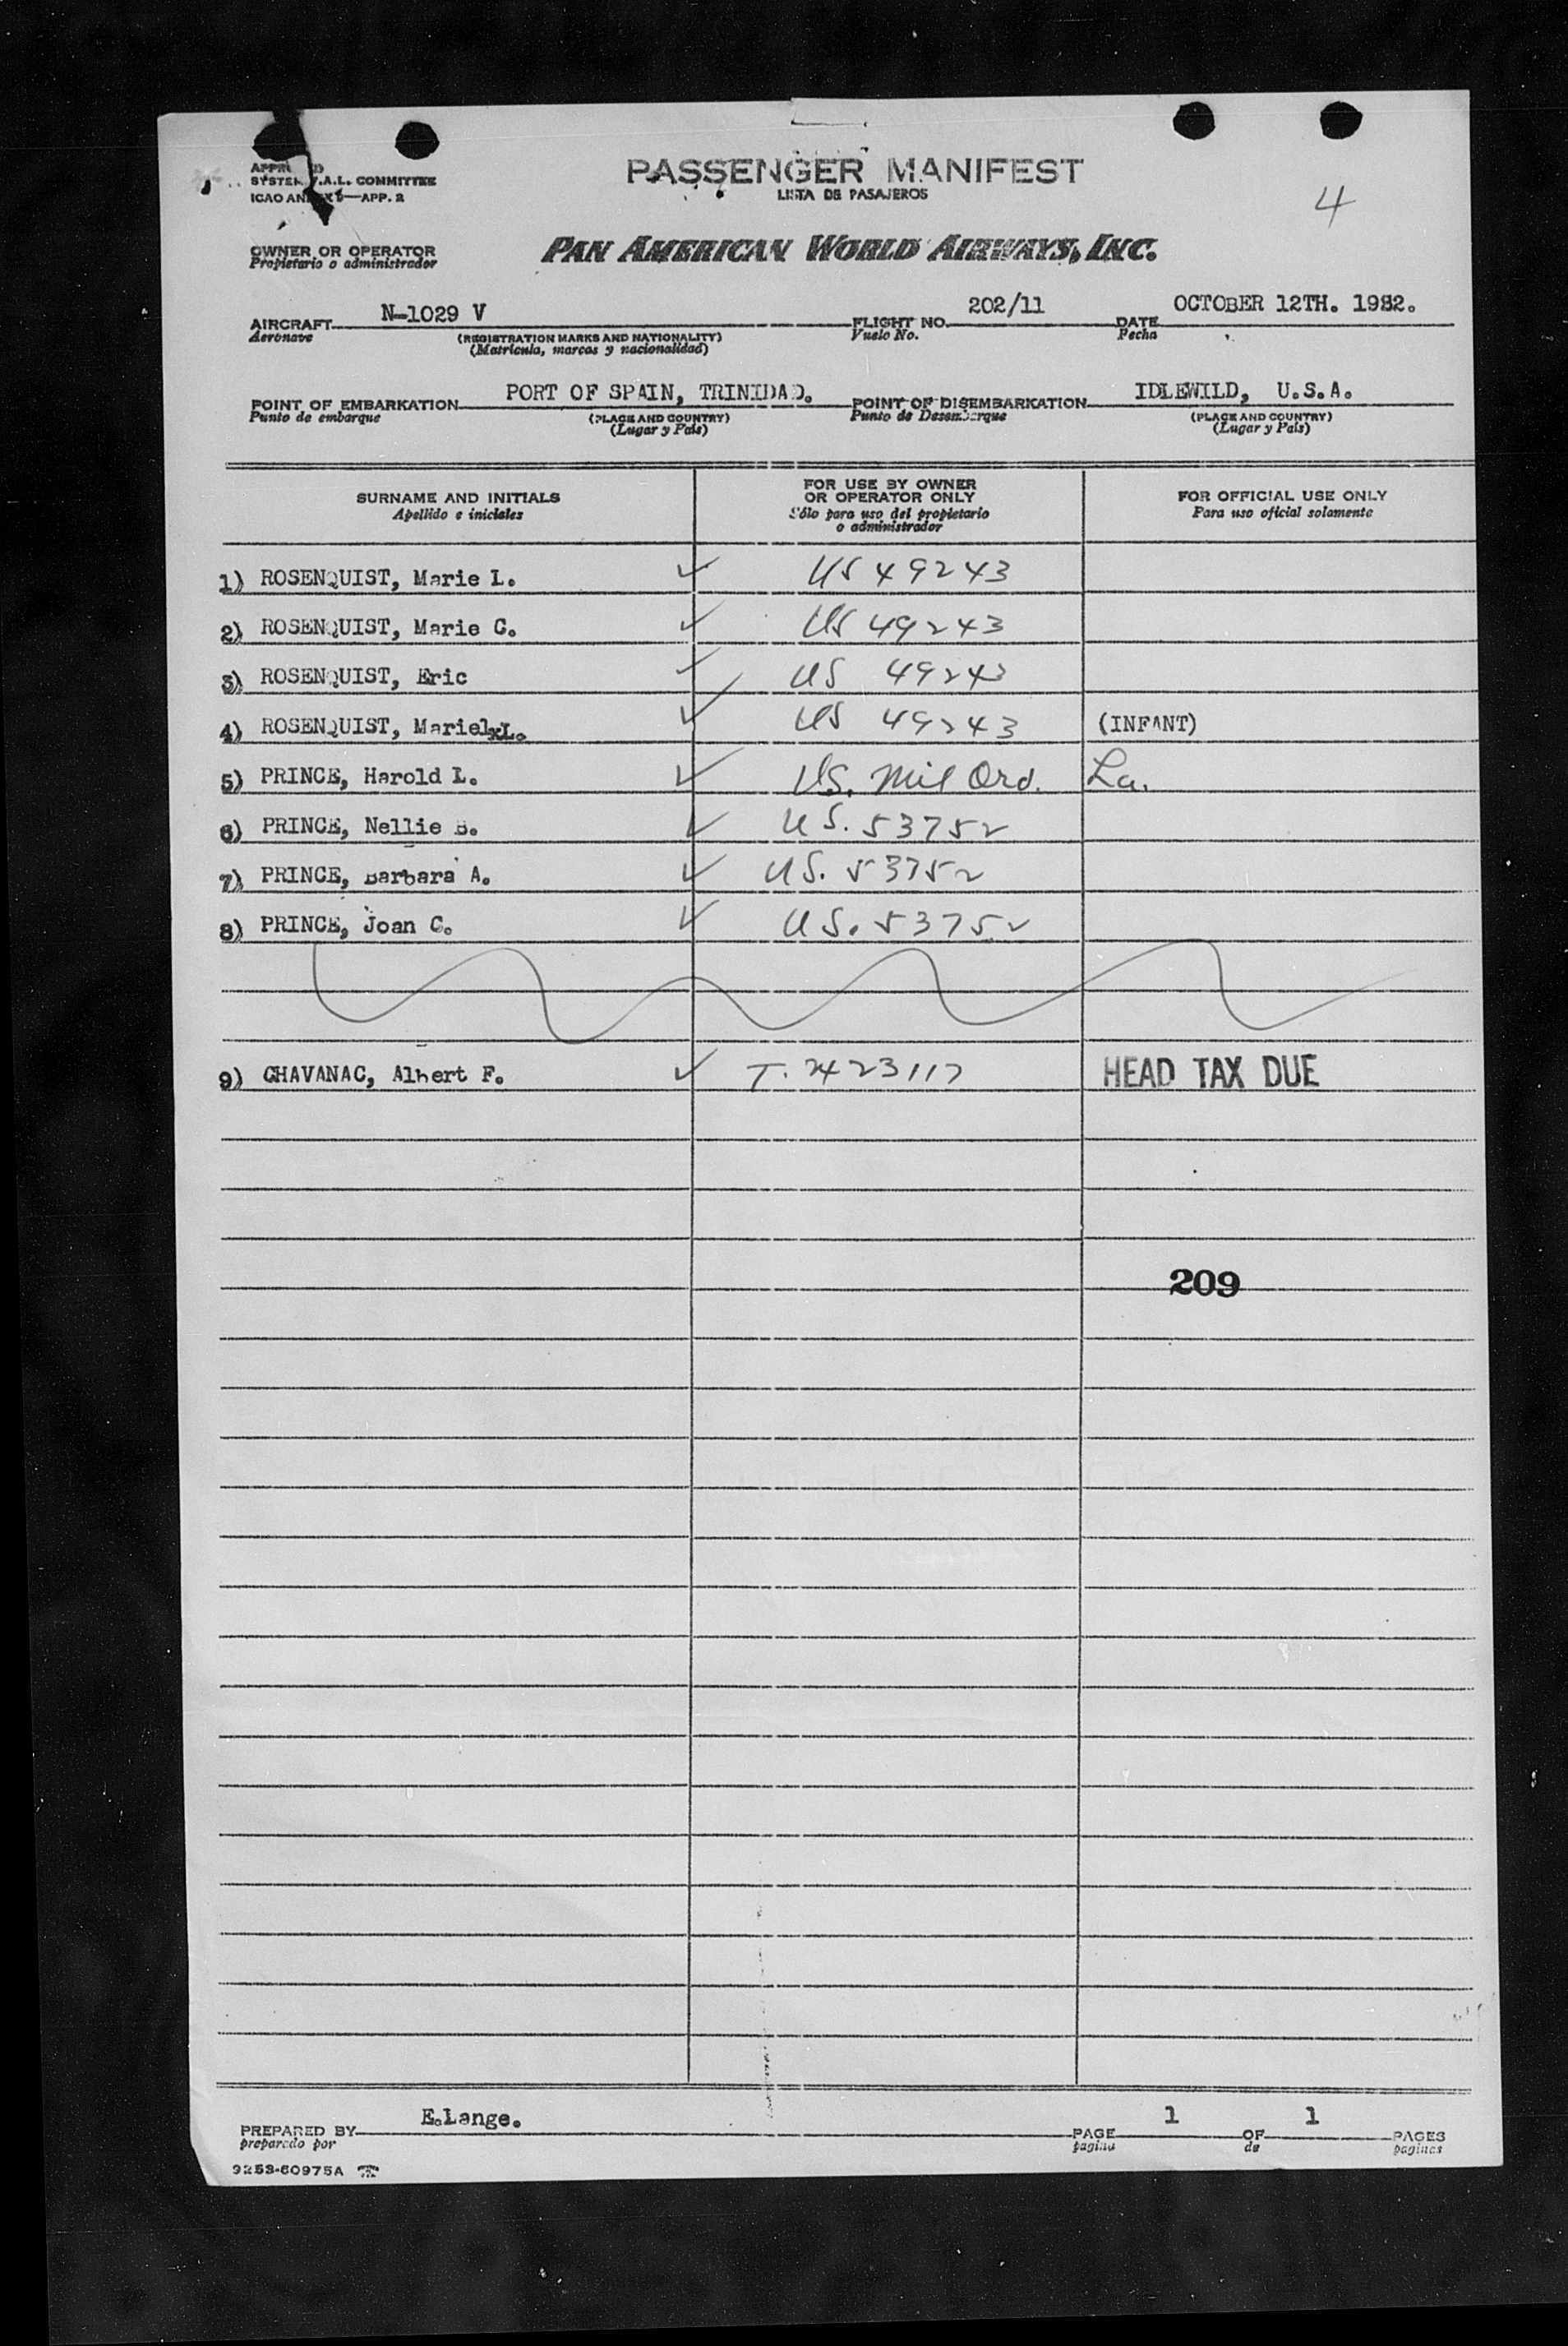 PASSENGER MANIFEST
LISTA DE PASAJEROS
SYSTEM F.A.L. COMMITTEE
ICAO ANNEX 9—APP. 2
4
OWNER OR OPERATOR
Propietario o administrador
PAN AMERICAN WORLD AIRWAYS, INC.
AIRCRAFT N-1029 V FLIGHT NO. 202/11 DATE OCTOBER 12TH. 1952.
Aeronave (REGISTRATION MARKS AND NATIONALITY) Vuelo No. Fecha
(Matrícula, marcas y nacionalidad)
POINT OF EMBARKATION PORT OF SPAIN, TRINIDAD. POINT OF DISEMBARKATION IDLEWILD, U.S.A.
Punto de embarque (PLACE AND COUNTRY) Punto de Desembarque (PLACE AND COUNTRY)
(Lugar y País) (Lugar y País)
SURNAME AND INITIALS
Apellido e iniciales
FOR USE BY OWNER
OR OPERATOR ONLY
Sólo para uso del propietario
o administrador
FOR OFFICIAL USE ONLY
Para uso oficial solamente
1) ROSENQUIST, Marie L. ✓ US 49243
2) ROSENQUIST, Marie C. ✓ US 49243
3) ROSENQUIST, Eric ✓ US 49243
4) ROSENQUIST, MarielxL. ✓ US 49243 (INFANT)
5) PRINCE, Harold L. ✓ US. Mil Ord. La.
6) PRINCE, Nellie B. ✓ US. 53752
7) PRINCE, Barbara A. ✓ US. 53752
8) PRINCE, Joan C. ✓ US. 53752
9) CHAVANAC, Albert F. ✓ T. 2423117 HEAD TAX DUE
209
PREPARED BY E.Lange. PAGE 1 OF 1 PAGES
preparado por pagina de paginas
9253-60975A